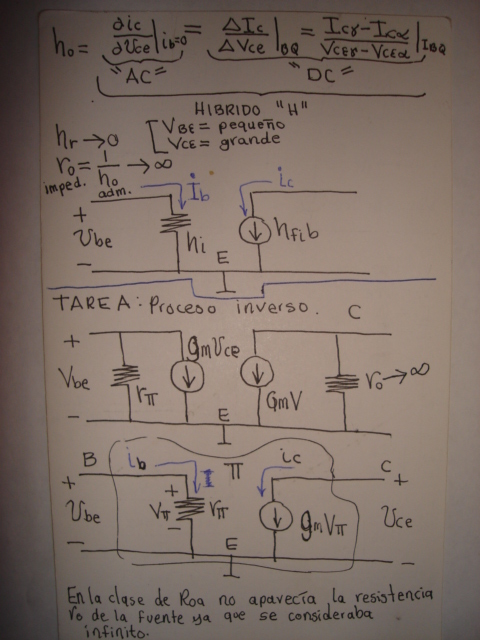 ho = ∂ic/∂Vce |ib=0 = ΔIc/ΔVce |BQ = Icγ-Icα/Vceγ-Vceα |IBQ
"AC" "DC"
HIBRIDO "H"
hr → 0 [VBE = pequeño
VCE = grande
ro = 1/ho → ∞
imped. adm. Ib ic
+
Vbe hi hfib
- E
TAREA: Proceso inverso. C
+ gmVce
Vbe rπ GmV ro → ∞
- E
B ib I π ic C
+ + +
Vbe Vπ rπ gmVπ Vce
-
- E -
En la clase de Roa no aparecía la resistencia
ro de la fuente ya que se consideraba
infinito.